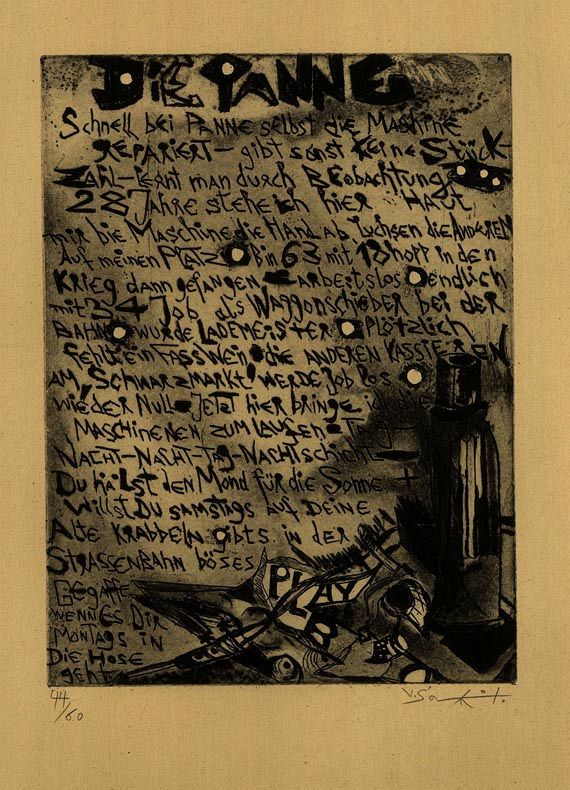 DIE PANNE
Schnell bei PANNE selbst die MASCHINE
REPARIERT - gibt sonst keine STÜCK-
ZAHL - lernt man durch BEOBACHTUNG
28 JAHRE stehe ich hier HAUT
mir die MASCHINE die HAND ab luchsen die ANDEREN
Auf meinen PLATZ Bin 63 mit 18 hopp in den
KRIEG dann gefangen - arbeitslos endlich
mit 34 Job als WAGGONSCHIEBER bei der
BAHN wurde LADEMEISTER plötzlich
fehlt ein FASS Wein die ANDEREN KASSIEREN
AM SCHWARZMARKT werde job los
wieder NULL - Jetzt hier bringe ich die
MASCHINENEN ZUM LAUFEN - TAG -
NACHT-NACHT-TAG-NACHTSCHICHT
Du hälst den Mond für die Sonne +
Willst Du samstags auf deine
Alte KRABBELN gibts in der
STRASSENBAHN böses
GEGAFFE
wenn ES DIR
MONTAGS in
DIE HOSE
geht
PLAY
44/60